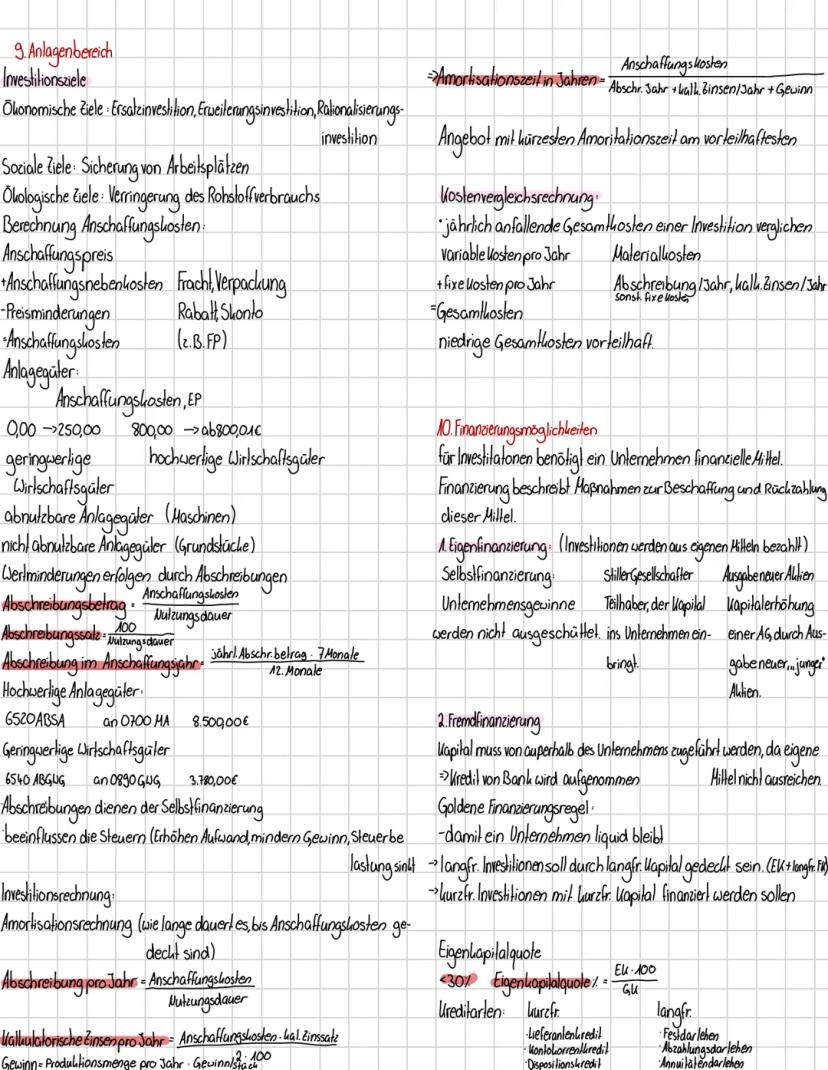 9. Anlagenbereich
Investitionsziele
Ökonomische Ziele: Ersatzinvestition, Erweiterungsinvestition, Rationalisierungs-
investition
Soziale Ziele: Sicherung von Arbeitsplätzen
Ökologische Ziele: Verringerung des Rohstoffverbrauchs
Berechnung Anschaffungskosten:
Anschaffungspreis
+Anschaffungsnebenkosten Fracht, Verpackung
-Preisminderungen Rabatt, Skonto
=Anschaffungskosten (z.B. FP)
Anlagegüter:
Anschaffungskosten, EP
0,00 → 250,00 800,00 → ab 800,01€
geringwertige hochwertige Wirtschaftsgüter
Wirtschaftsgüter
abnutzbare Anlagegüter (Maschinen)
nicht abnutzbare Anlagegüter (Grundstücke)
Wertminderungen erfolgen durch Abschreibungen
Abschreibungsbetrag = Anschaffungskosten / Nutzungsdauer
Abschreibungssatz = 100 / Nutzungsdauer
Abschreibung im Anschaffungsjahr = jährl. Abschr.betrag · 7 Monate / 12. Monate
Hochwertige Anlagegüter:
6520 ABSA an 0700 MA 8.500,00€
Geringwertige Wirtschaftsgüter
6540 ABGWG an 0890 GWG 3.780,00€
Abschreibungen dienen der Selbstfinanzierung
beeinflussen die Steuern (Erhöhen Aufwand, mindern Gewinn, Steuerbe
lastung sinkt
Investitionsrechnung:
Amortisationsrechnung (wie lange dauert es, bis Anschaffungskosten ge-
deckt sind)
Abschreibung pro Jahr = Anschaffungskosten / Nutzungsdauer
Kalkulatorische Zinsen pro Jahr = Anschaffungskosten · kal. Zinssatz / 2 · 100
Gewinn = Produktionsmenge pro Jahr · Gewinn/Stück
=>Amortisationszeit in Jahren = Anschaffungskosten / Abschr. Jahr + kalk. Zinsen/Jahr + Gewinn
Angebot mit kürzesten Amoritationszeit am vorteilhaftesten
Kostenvergleichsrechnung:
·jährlich anfallende Gesamtkosten einer Investition verglichen
variable Kosten pro Jahr Materialkosten
+fixe Kosten pro Jahr Abschreibung/Jahr, kalk. Zinsen/Jahr
sonst. fixe Kosten
=Gesamtkosten
niedrige Gesamtkosten vorteilhaft.
10. Finanzierungsmöglichkeiten
für Investitatonen benötigt ein Unternehmen finanzielle Mittel.
Finanzierung beschreibt Maßnahmen zur Beschaffung und Rückzahlung
dieser Mittel.
1. Eigenfinanzierung: (Investitionen werden aus eigenen Mitteln bezahlt)
Selbstfinanzierung: Stiller Gesellschafter Ausgabe neuer Aktien
Unternehmensgewinne Teilhaber, der Kapital Kapitalerhöhung
werden nicht ausgeschüttet. ins Unternehmen ein- einer AG, durch Aus-
bringt. gabe neuer, „junger"
Aktien.
2. Fremdfinanzierung
Kapital muss von außerhalb des Unternehmens zugeführt werden, da eigene
=>Kredit von Bank wird aufgenommen Mittel nicht ausreichen.
Goldene Finanzierungsregel:
-damit ein Unternehmen liquid bleibt
→langfr. Investitionen soll durch langfr. Kapital gedeckt sein. (EK + langfr. FK)
→kurzfr. Investitionen mit kurzfr. Kapital finanziert werden sollen
Eigenkapitalquote
<30% Eigenkapitalquote % = EK · 100 / GK
Kreditarten: kurzfr. langfr.
·Lieferantenkredit ·Festdarlehen
·Kontokorrentkredit ·Abzahlungsdarlehen
·Dispositionskredit ·Annuitätendarlehen